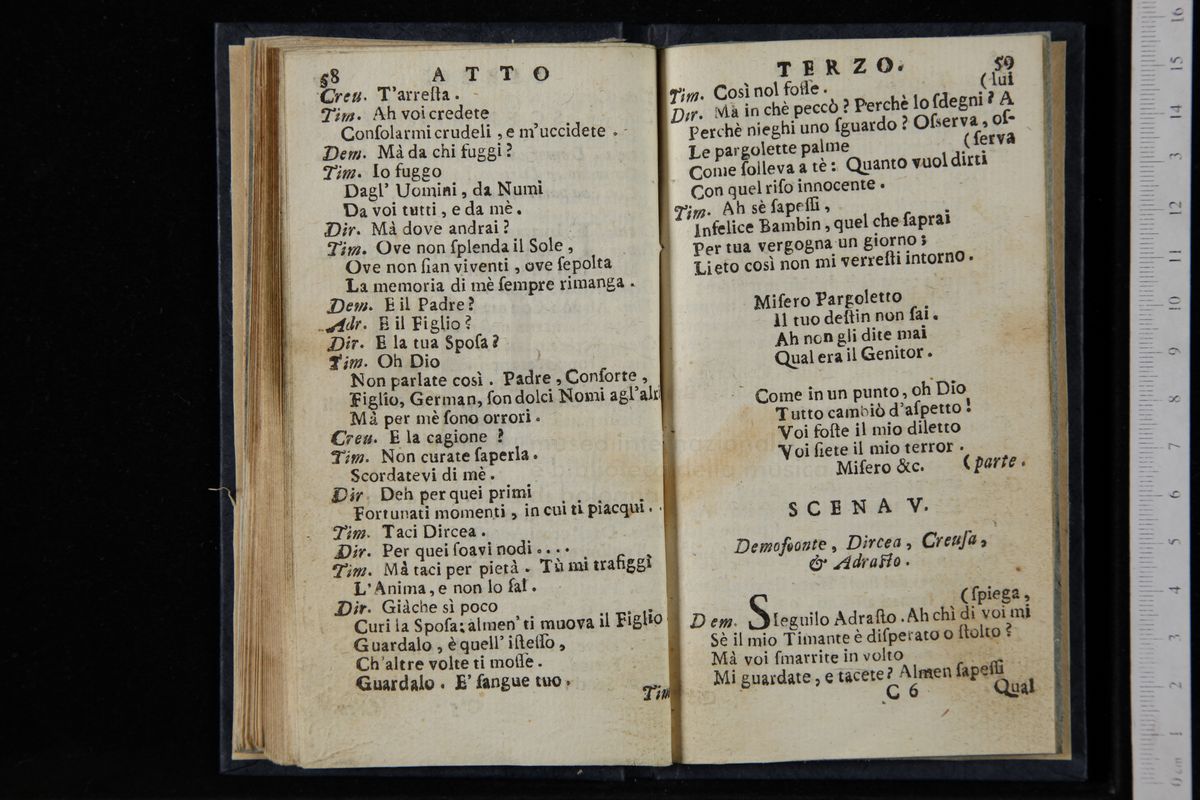 58 ATTO
Creu. T'arreſta.
Tim. Ah voi credete
Conſolarmi crudeli, e m'uccidete.
Dem. Mà da chi fuggi?
Tim. Io fuggo
Dagl' Uomini, da Numi
Da voi tutti, e da mè.
Dir. Mà dove andrai?
Tim. Ove non ſplenda il Sole,
Ove non ſian viventi, ove ſepolta
La memoria di mè ſempre rimanga.
Dem. E il Padre?
Adr. E il Figlio?
Dir. E la tua Spoſa?
Tim. Oh Dio
Non parlate così. Padre, Conſorte,
Figlio, German, ſon dolci Nomi agl'altri
Mà per mè ſono orrori.
Creu. E la cagione?
Tim. Non curate ſaperla.
Scordatevi di mè.
Dir. Deh per quei primi
Fortunati momenti, in cui ti piacqui..
Tim. Taci Dircea.
Dir. Per quei ſoavi nodi....
Tim. Mà taci per pietà. Tù mi trafiggi
L'Anima, e non lo ſai.
Dir. Giàche sì poco
Curi la Spoſa: almen' ti muova il Figlio
Guardalo, è quell' iſteſſo,
Ch'altre volte ti moſſe.
Guardalo. E' ſangue tuo.
Tim
TERZO. 59
Tim. Così nol foſſe. (lui
Dir. Mà in chè peccò? Perchè lo ſdegni? A
Perchè nieghi uno ſguardo? Oſserva, oſ-
Le pargolette palme (ſerva
Come ſolleva a tè: Quanto vuol dirti
Con quel riſo innocente.
Tim. Ah sè ſapeſſi,
Infelice Bambin, quel che ſaprai
Per tua vergogna un giorno;
Lieto così non mi verreſti intorno.
Miſero Pargoletto
Il tuo deſtin non ſai.
Ah non gli dite mai
Qual era il Genitor.
Come in un punto, oh Dio
Tutto cambiò d'aſpetto!
Voi foſte il mio diletto
Voi ſiete il mio terror.
Miſero &c. (parte.
SCENA V.
Demofoonte, Dircea, Creuſa,
& Adraſto.
(ſpiega,
Dem. SIeguilo Adraſto. Ah chì di voi mi
Sè il mio Timante è diſperato o ſtolto?
Mà voi ſmarrite in volto
Mi guardate, e tacete? Almen ſapeſſi
C 6 Qual
museo internazionale
biblioteca della musica
16
15
14
13
12
11
10
9
8
7
6
5
4
3
2
1
0 cm